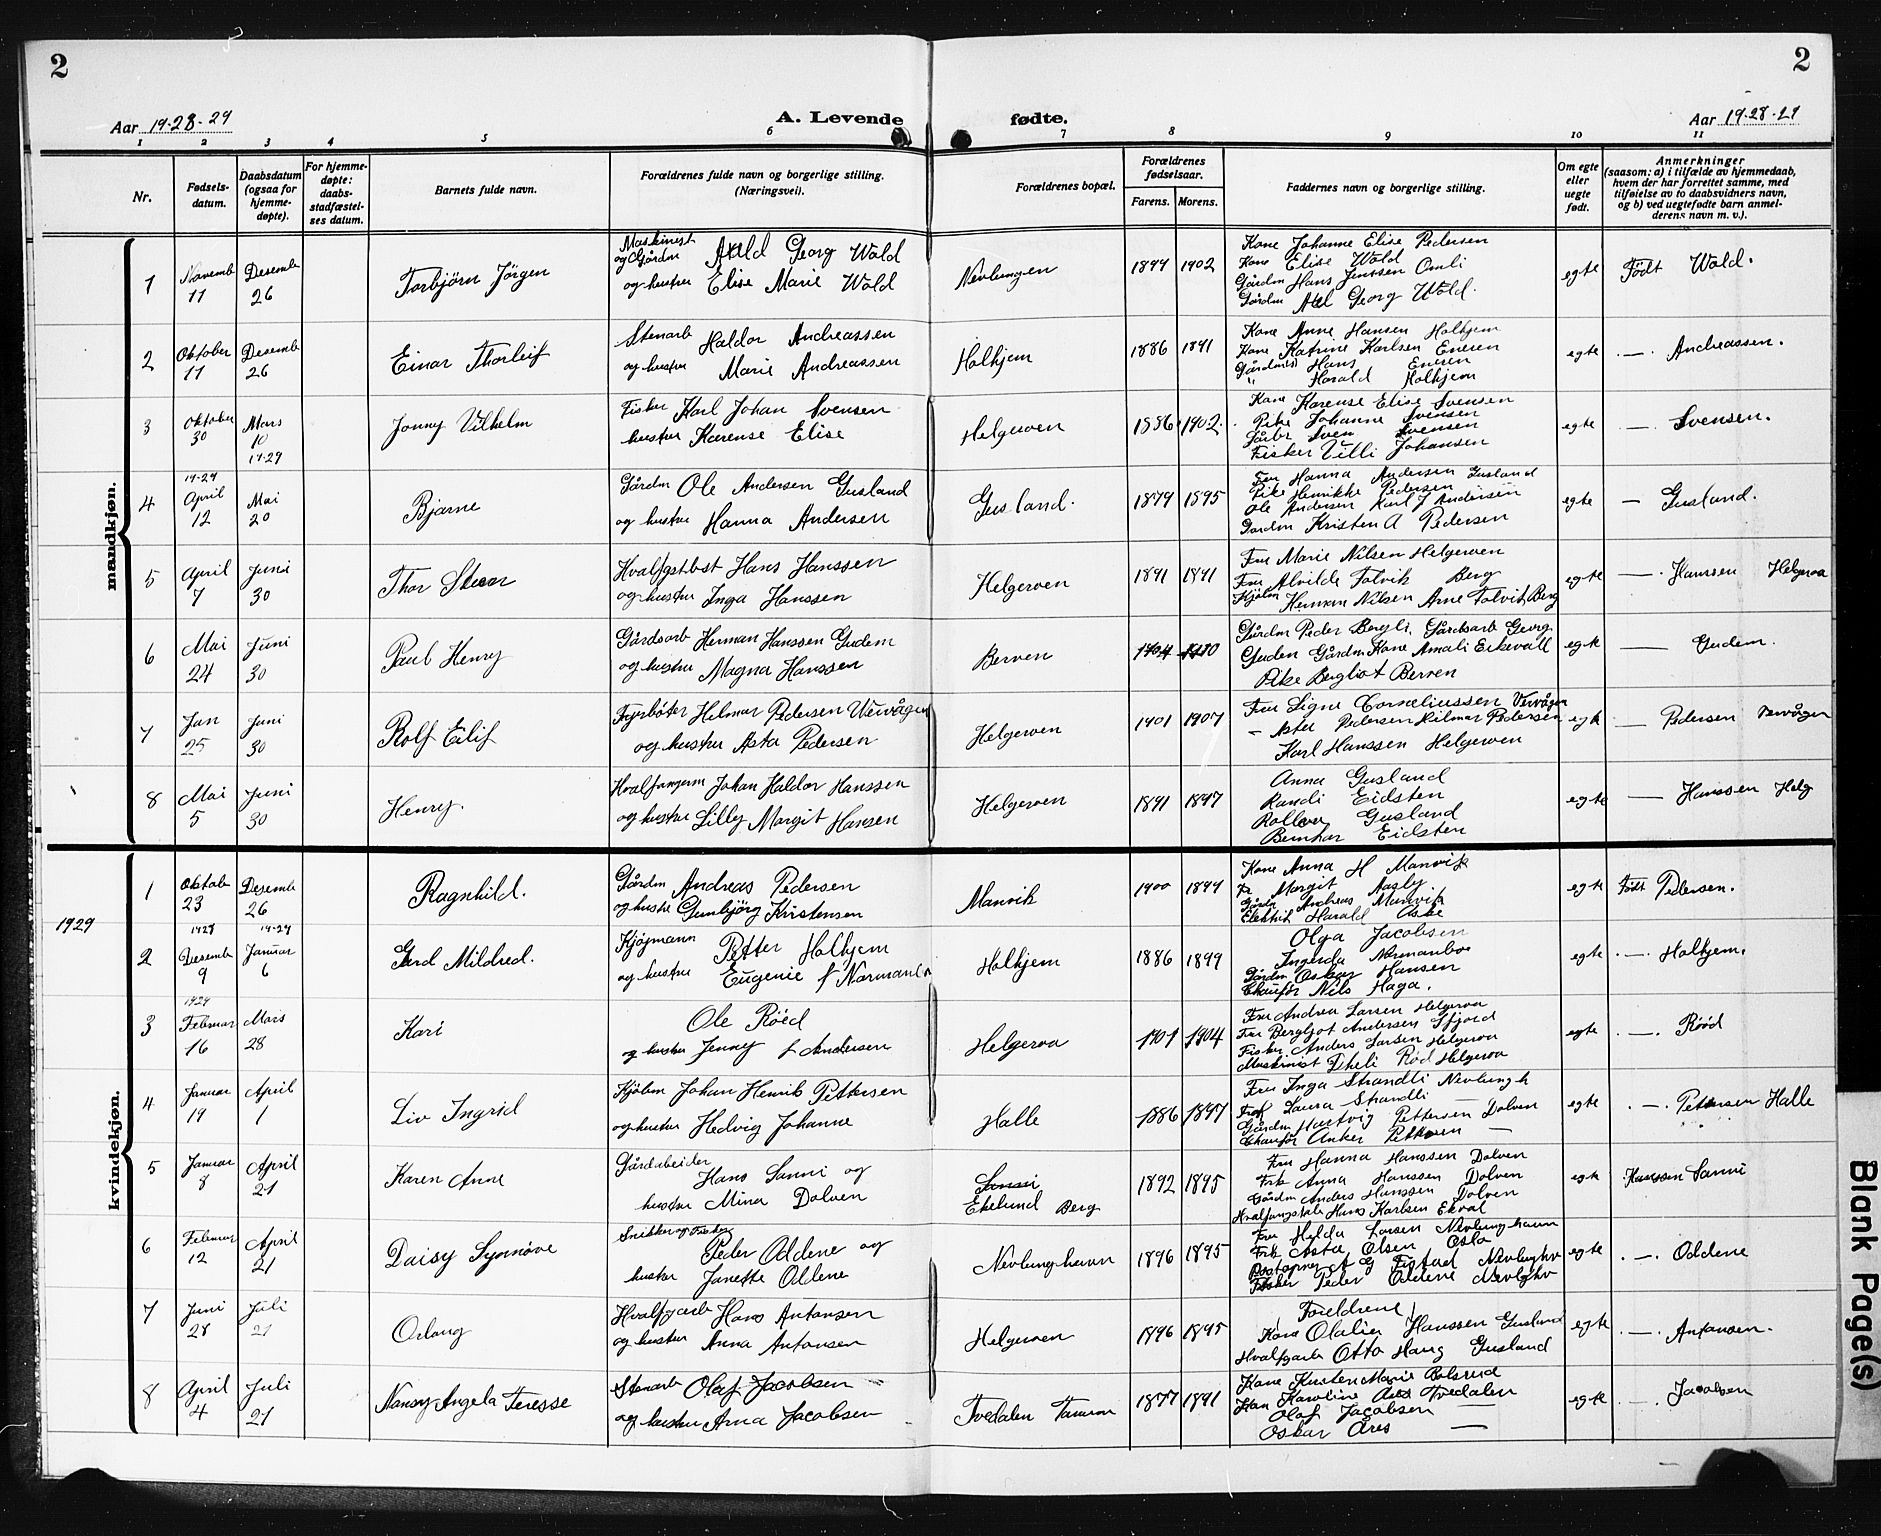 2
2
Aar 19-28-29
A. Levende
fødte.
Aar 19-28-29
1 2 3 4 5 6 7 8 9 10 11
Nr.
Fødsels-
datum.
Daabsdatum
(ogsaa for
hjemme-
døpte).
For hjemme-
døpte:
daabs-
stadfæstel-
ses datum.
Barnets fulde navn.
Forældrenes fulde navn og borgerlige stilling.
(Næringsvei).
Forældrenes bopæl.
Forældrenes
fødselsaar.
Farens. Morens.
Faddernes navn og borgerlige stilling.
Om egte
eller
uegte
født.
Anmerkninger
(saasom: a) i tilfælde av hjemmedaab,
hvem der har forrettet samme, med
tilføielse av to daabsvidners navn,
og b) ved uegtefødte barn anmel-
derens navn m. v.).
mandkjøn.
1
Novemb
11
Desemb
26
Torbjørn Jørgen
Maskinest
og Gårdm Axel Georg Wold
og hustru Elise Marie Wold
Nevlungen
1899 1902
Kone Johanne Elise Pedersen
Kone Elise Wold
Gårdm Hans Jenssen Omli
Gårdm Axel Georg Wold.
egte
Født Wold.
2
Oktober
11
Desemb
26
Einar Thorleif
Stenarb Haldor Andreassen
og hustru Marie Andreassen
Holkjem
1886 1891
Kone Anne Hansen Holkjem
Kone Katrine Karlsen Enesen
Hans Enesen
" Harald Holkjem
egte
. — . Andreassen.
3
Oktober
30
Mars
10
19-29
Jonny Vilhelm
Fisker Karl Johan Svensen
hustru Karense Elise
Helgeroen
1886 1902.
Kone Karense Elise Svensen
Pike Johanne Svensen
Sven Svensen
Fisker Villi Johansen
egte
. — . Svensen.
4
19-29
April
12
Mai
20
Bjarne
Gårdm Ole Andersen Gusland
og hustru Hanna Andersen
Gusland.
1879 1895
Fru Hanna Andersen Gusland
Pike Henrikke Pedersen
Ole Andersen Karl J Andersen
Gårdm Kristen A Pedersen
egte
— Gusland.
5
April
7
Juni
30
Thor Steen
Hvalfgstbst Hans Hanssen
og hustru Inga Hanssen
Helgeroen
1891 1891
Fru Marie Nilsen Helgeroen
Fru Alvilde Tolvik Berg
Herman Nilsen Arne Tolvik Berg
egte
— . Hanssen Helgeroa
6
Mai
24
Juni
30
Paul Henry
Gårdsarb Herman Hanssen Gudem
og hustru Magna Hanssen
Berven
1904 1910
Gårdm Peder Bergli, Gårdsarb Georg
Guden Gårdm Kone Amali Eikevall
Pike Bergliot Berven
egte
— Gudem.
7
Jan
25
Juni
30
Rolf Eilif
Fyrbøter Helmar Pedersen Vervågen
og hustru Asta Pedersen
Helgeroen
1901 1907
Fru Signe Corneliussen Vervågen
— Asta Pedersen Hilmar Pedersen
Karl Hanssen Helgeroen
egte
— . Pedersen Vervågen
8
Mai
5
Juni
30
Henry.
Hvalfangerm Johan Haldor Hanssen
og hustru Lilly Margit Hansen
Helgeroen
1891 1897
Anna Gusland
Randi Eidsten
Gusland
Bernhar Eidsten
egte
— Hanssen Helg
kvindekjøn.
1929
1
Oktob
23
Desemb
26
Ragnhild.
Gårdm Andreas Pedersen
og hustru Gunbjørg Kristensen
Manvik
1900 1899
Kone Anna H Manvik
Margit Aasly
Gårdm Andreas Manvik
Elektrik Harald Aske
egte
Født Pedersen.
2
1928
Desemb
9
19-29
Januar
6
Gerd Mildred.
Kjøpmann Petter Holkjem
og hustru Eugenie f Normanbo
Holkjem
1886 1899
Olga Jacobsen
Ingerda Normanboe
Gårdm Oskar Hansen
Chaufør Nils Haga.
egte
. — . Holkjem.
3
1929
Februar
16
Mars
28
Kari
Ole Röed
og hustru Jenny f Andersen
Helgeroa
1901 1904
Fru Andrea Larsen Helgeroa
Fru Bergljot Andersen
Fisker Anders Larsen Helgeroa
Maskinist Röd Helgeroa
egte
. — . Röød
4
Januar
19
April
1
Liv Ingrid
Johan Henrik Pettersen
og hustru Hedvig Johanne
Halle
1886 1897
Fru Inga Strandli Nevlungh
Laura Strandli —
Gårdm Hartvig Pettersen Dolven
Chaufør Anker Pettersen —
egte
. — . Pettersen Halle
5
Januar
8
April
21
Karen Anne
Gårdarbeider
Hans Sanni og
hustru Mina Dolven
Sanni
Ekelund Berg
1892 1895
Fru Hanna Hanssen Dolven
Frk Anna Hanssen Dolven
Gårdm Anders Hanssen Dolven
Hans Karlsen Ekval
egte
Hanssen Sanni
6
Februar
12
April
21
Daisy Synnøve
Snikker og Fisker
Peder Oddene og
hustru Janette Oddene
Nevlunghavn
1896 1895
Fru Helda Larsen Nevlunghavn
Frk Asta Olsen Oslo
Nevlunghv
Fisker Peder Oddene Nevlghv
egte
. — . Oddene
7
Juni
28
Juli
21
Orlaug
Hvalfgarb Hans Antonsen
og hustru Anna Antonsen
Helgeroen
1896 1895
Foreldrene
Kone Olalia Hanssen Gusland
Hvalfgarb Otto Haug Gusland
egte
. — . Antonsen.
8
April
4
Juli
21
Nansy Angela Teresse
Stenarb Olaf Jacobsen
og hustru Anna Jacobsen
Tvedalen
1877 1891
Kone Kirsten Marie
Karoline Ares Tvedalen
Olaf Jacobsen —
Oskar Ares —
egte
. — . Jacobsen
Blank Page(s)